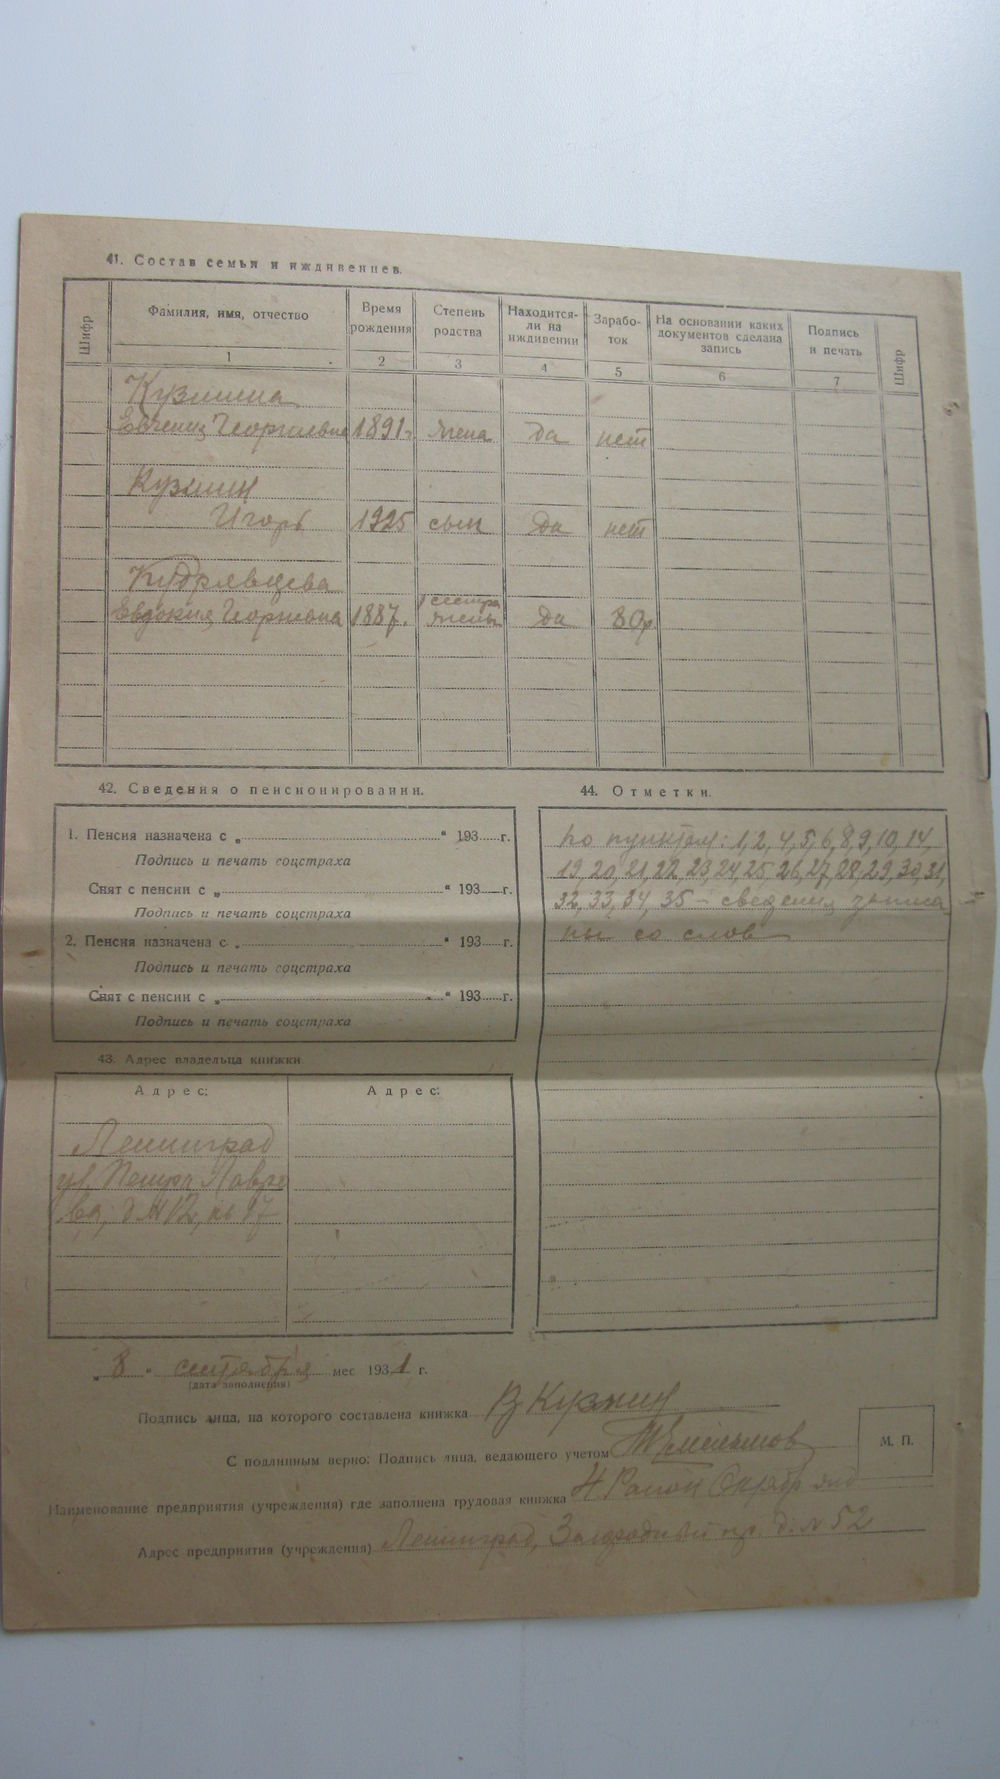 41. Состав семьи и иждивенцев.
Шифр
Фамилия, имя, отчество
Время рождения
Степень родства
Находится-ли на иждивении
Зарабо-ток
На основании каких документов сделана запись
Подпись и печать
Шифр
1 2 3 4 5 6 7
Кузмина
Евгения Георгиевна 1891 г. жена да нет
Кузмин
Игорь 1925 сын да нет
Кудрявцева
сестра
Евдокия Георгиевна 1887 г. жены да 80р
42. Сведения о пенсионировании.
1. Пенсия назначена с „ “ 193 г.
Подпись и печать соцстраха
Снят с пенсии с „ “ 193 г.
Подпись и печать соцстраха
2. Пенсия назначена с „ “ 193 г.
Подпись и печать соцстраха
Снят с пенсии с „ “ 193 г.
Подпись и печать соцстраха
44. Отметки.
по пунктам: 1, 2, 4, 5, 6, 8, 9, 10, 14,
19, 20, 21, 22, 23, 24, 25, 26, 27, 28, 29, 30, 31,
32, 33, 34, 35 – сведения записа
ны со слов
43. Адрес владельца книжки
Адрес: Адрес:
Ленинград
ул. Петра Лавро
ва, д № 12, кв 17
„ 8 “ сентября мес 1931 г.
(дата заполнения)
Подпись лица, на которого составлена книжка В Кузмин
С подлинным верно: Подпись лица, ведающего учетом
М. П.
Наименование предприятия (учреждения) где заполнена трудовая книжка 4 Район Октябр
Адрес предприятия (учреждения) Ленинград, Загородный пр. д. № 52